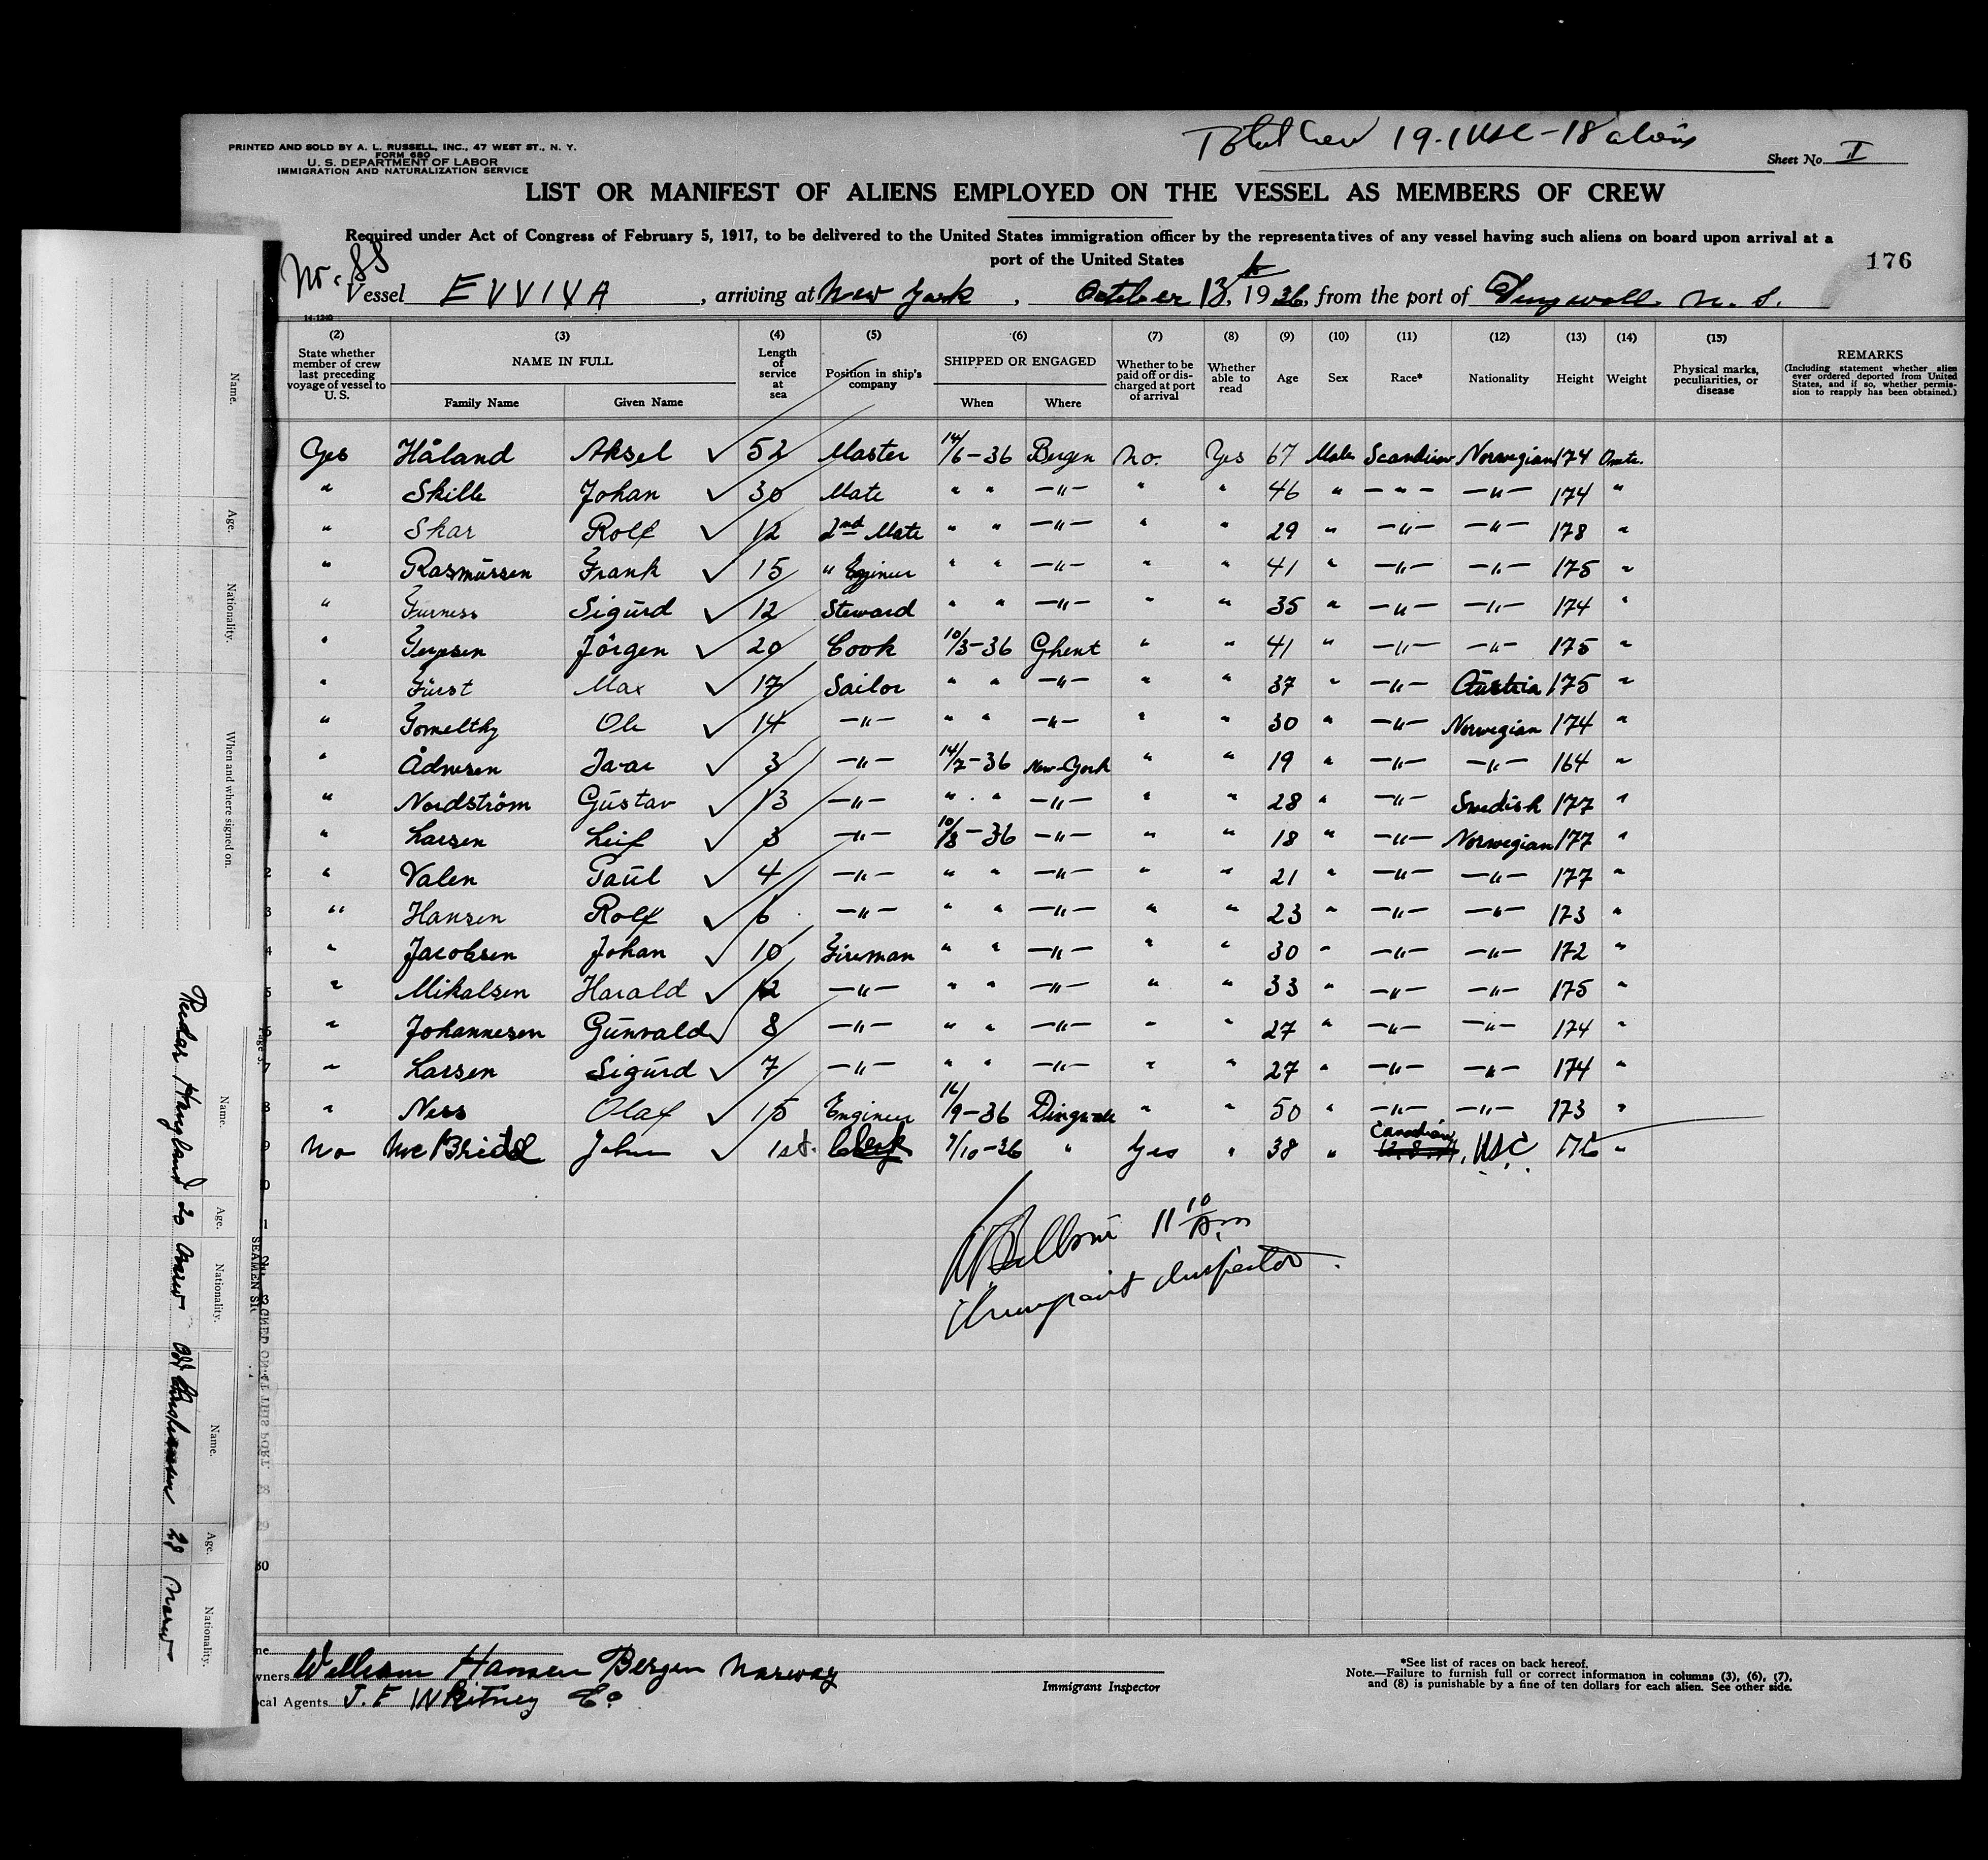 PRINTED AND SOLD BY A. L. RUSSELL, INC., 47 WEST ST., N. Y.
FORM 680
U. S. DEPARTMENT OF LABOR
IMMIGRATION AND NATURALIZATION SERVICE
Total Crew 19. 1 USC - 18 aliens
Sheet No. II
LIST OR MANIFEST OF ALIENS EMPLOYED ON THE VESSEL AS MEMBERS OF CREW
Required under Act of Congress of February 5, 1917, to be delivered to the United States immigration officer by the representatives of any vessel having such aliens on board upon arrival at a
port of the United States
176
Nor. SS
Vessel EVVIVA, arriving at New York, October 13, 1936, from the port of Dingwall. N. S.
14-1240
(2) (3) (4) (5) (6) (7) (8) (9) (10) (11) (12) (13) (14) (15)
State whether member of crew last preceding voyage of vessel to U. S.
NAME IN FULL
Family Name Given Name
Length of service at sea
Position in ship's company
SHIPPED OR ENGAGED
When Where
Whether to be paid off or discharged at port of arrival
Whether able to read
Age Sex Race* Nationality Height Weight
Physical marks, peculiarities, or disease
REMARKS
(Including statement whether alien ever ordered deported from United States, and if so, whether permission to reapply has been obtained.)
Yes Håland Aksel ✓ 52 Master 14/6-36 Bergen No. Yes 67 Male Norwegian 174
" Skille Johan ✓ 30 Mate " " -"- " " 46 " -"- -"- 174 "
" Skar Rolf ✓ 12 2nd Mate " " -"- " " 29 " -"- -"- 178 "
" Rasmussen Frank ✓ 15 " Engineer " " -"- " " 41 " -"- -"- 175 "
" Furness Sigurd ✓ 12 Steward " " -"- " " 35 " -"- -"- 174 "
" Jörgen ✓ 20 Cook 10/3-36 Ghent " " 41 " -"- -"- 175 "
" Fürst Max ✓ 17 Sailor " " -"- " " 37 " -"- Austria 175 "
" Ole ✓ 14 -"- " " -"- " " 30 " -"- Norwegian 174 "
" Ådnesen Ivar ✓ 3 -"- 14/7-36 New-York " " 19 " -"- -"- 164 "
" Nordström Gustav ✓ 13 -"- " " -"- " " 28 " -"- Swedish 177 "
" Larsen Leif ✓ 3 -"- 10/8-36 -"- " " 18 " -"- Norwegian 177 "
2 " Valen Paul ✓ 4 -"- " " -"- " " 21 " -"- -"- 177 "
3 " Hansen Rolf ✓ 6 -"- " " -"- " " 23 " -"- -"- 173 "
4 " Jacobsen Johan ✓ 10 Fireman " " -"- " " 30 " -"- -"- 172 "
5 " Mikalsen Harald ✓ 12 -"- " " -"- " " 33 " -"- -"- 175 "
6 " Johannesen Gunvald ✓ 8 -"- " " -"- " " 27 " -"- -"- 174 "
7 " Larsen Sigurd ✓ 7 -"- " " -"- " " 27 " -"- -"- 174 "
8 " Ness Olaf ✓ 15 Engineer 16/9-36 Dingwall " " 50 " -"- -"- 173 "
9 No John ✓ 1st. Clerk 7/10-36 " Yes " 38 " Canadian USC "
0
1
11 10 Am
Immigrant Inspector.
28
29
30
Owners William Hansen Bergen Norway
Local Agents J. F Whitney Co
Immigrant Inspector
*See list of races on back hereof.
Note.—Failure to furnish full or correct information in columns (3), (6), (7),
and (8) is punishable by a fine of ten dollars for each alien. See other side.
Name. Age. Nationality. When and where signed on.
Name. Age. Nationality. Name. Age. Nationality.
Reidar Haugland 20 Norw Odd 28 Norw
Page 3.